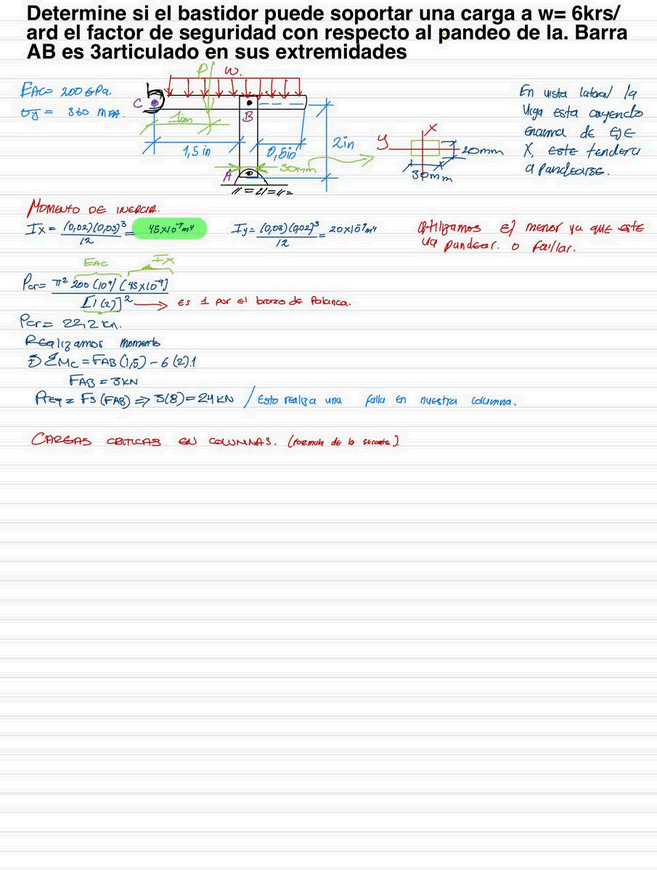 Determine si el bastidor puede soportar una carga a w= 6krs/
ard el factor de seguridad con respecto al pandeo de la. Barra
AB es 3articulado en sus extremidades
EAC= 200 GPa.
σy = 360 MPa.
P
w.
C
B
1m
1,5 in
0,5in
2in
30mm
A
x
y
20mm
30mm
En vista lateral la
viga esta cayendo
encima de eje
X, este tendera
a pandearse.
MOMENTO DE INERCIA.
Ix = (0,02)(0,03)³/12 = 45x10⁻⁹m⁴
Iy = (0,03)(0,02)³/12 = 20x10⁻⁹m⁴
utilizamos el menor ya que este
va pandear. o fallar.
EAC
Ix
Pcr= π² 200(10⁹)(45x10⁻⁹)
[1(2)]²
Es 1 por el brazo de Palanca.
Pcr= 22,2 kn.
Realizamos Momento
ΣMc = FAB(1,5) - 6(2).1
FAB = 8KN
Preq = Fs (FAB) => 3(8) = 24 KN / Esto realiza una falla en nuestra columna.
CARGAS CRITICAS EN COLUMNAS. (formula de la secante)